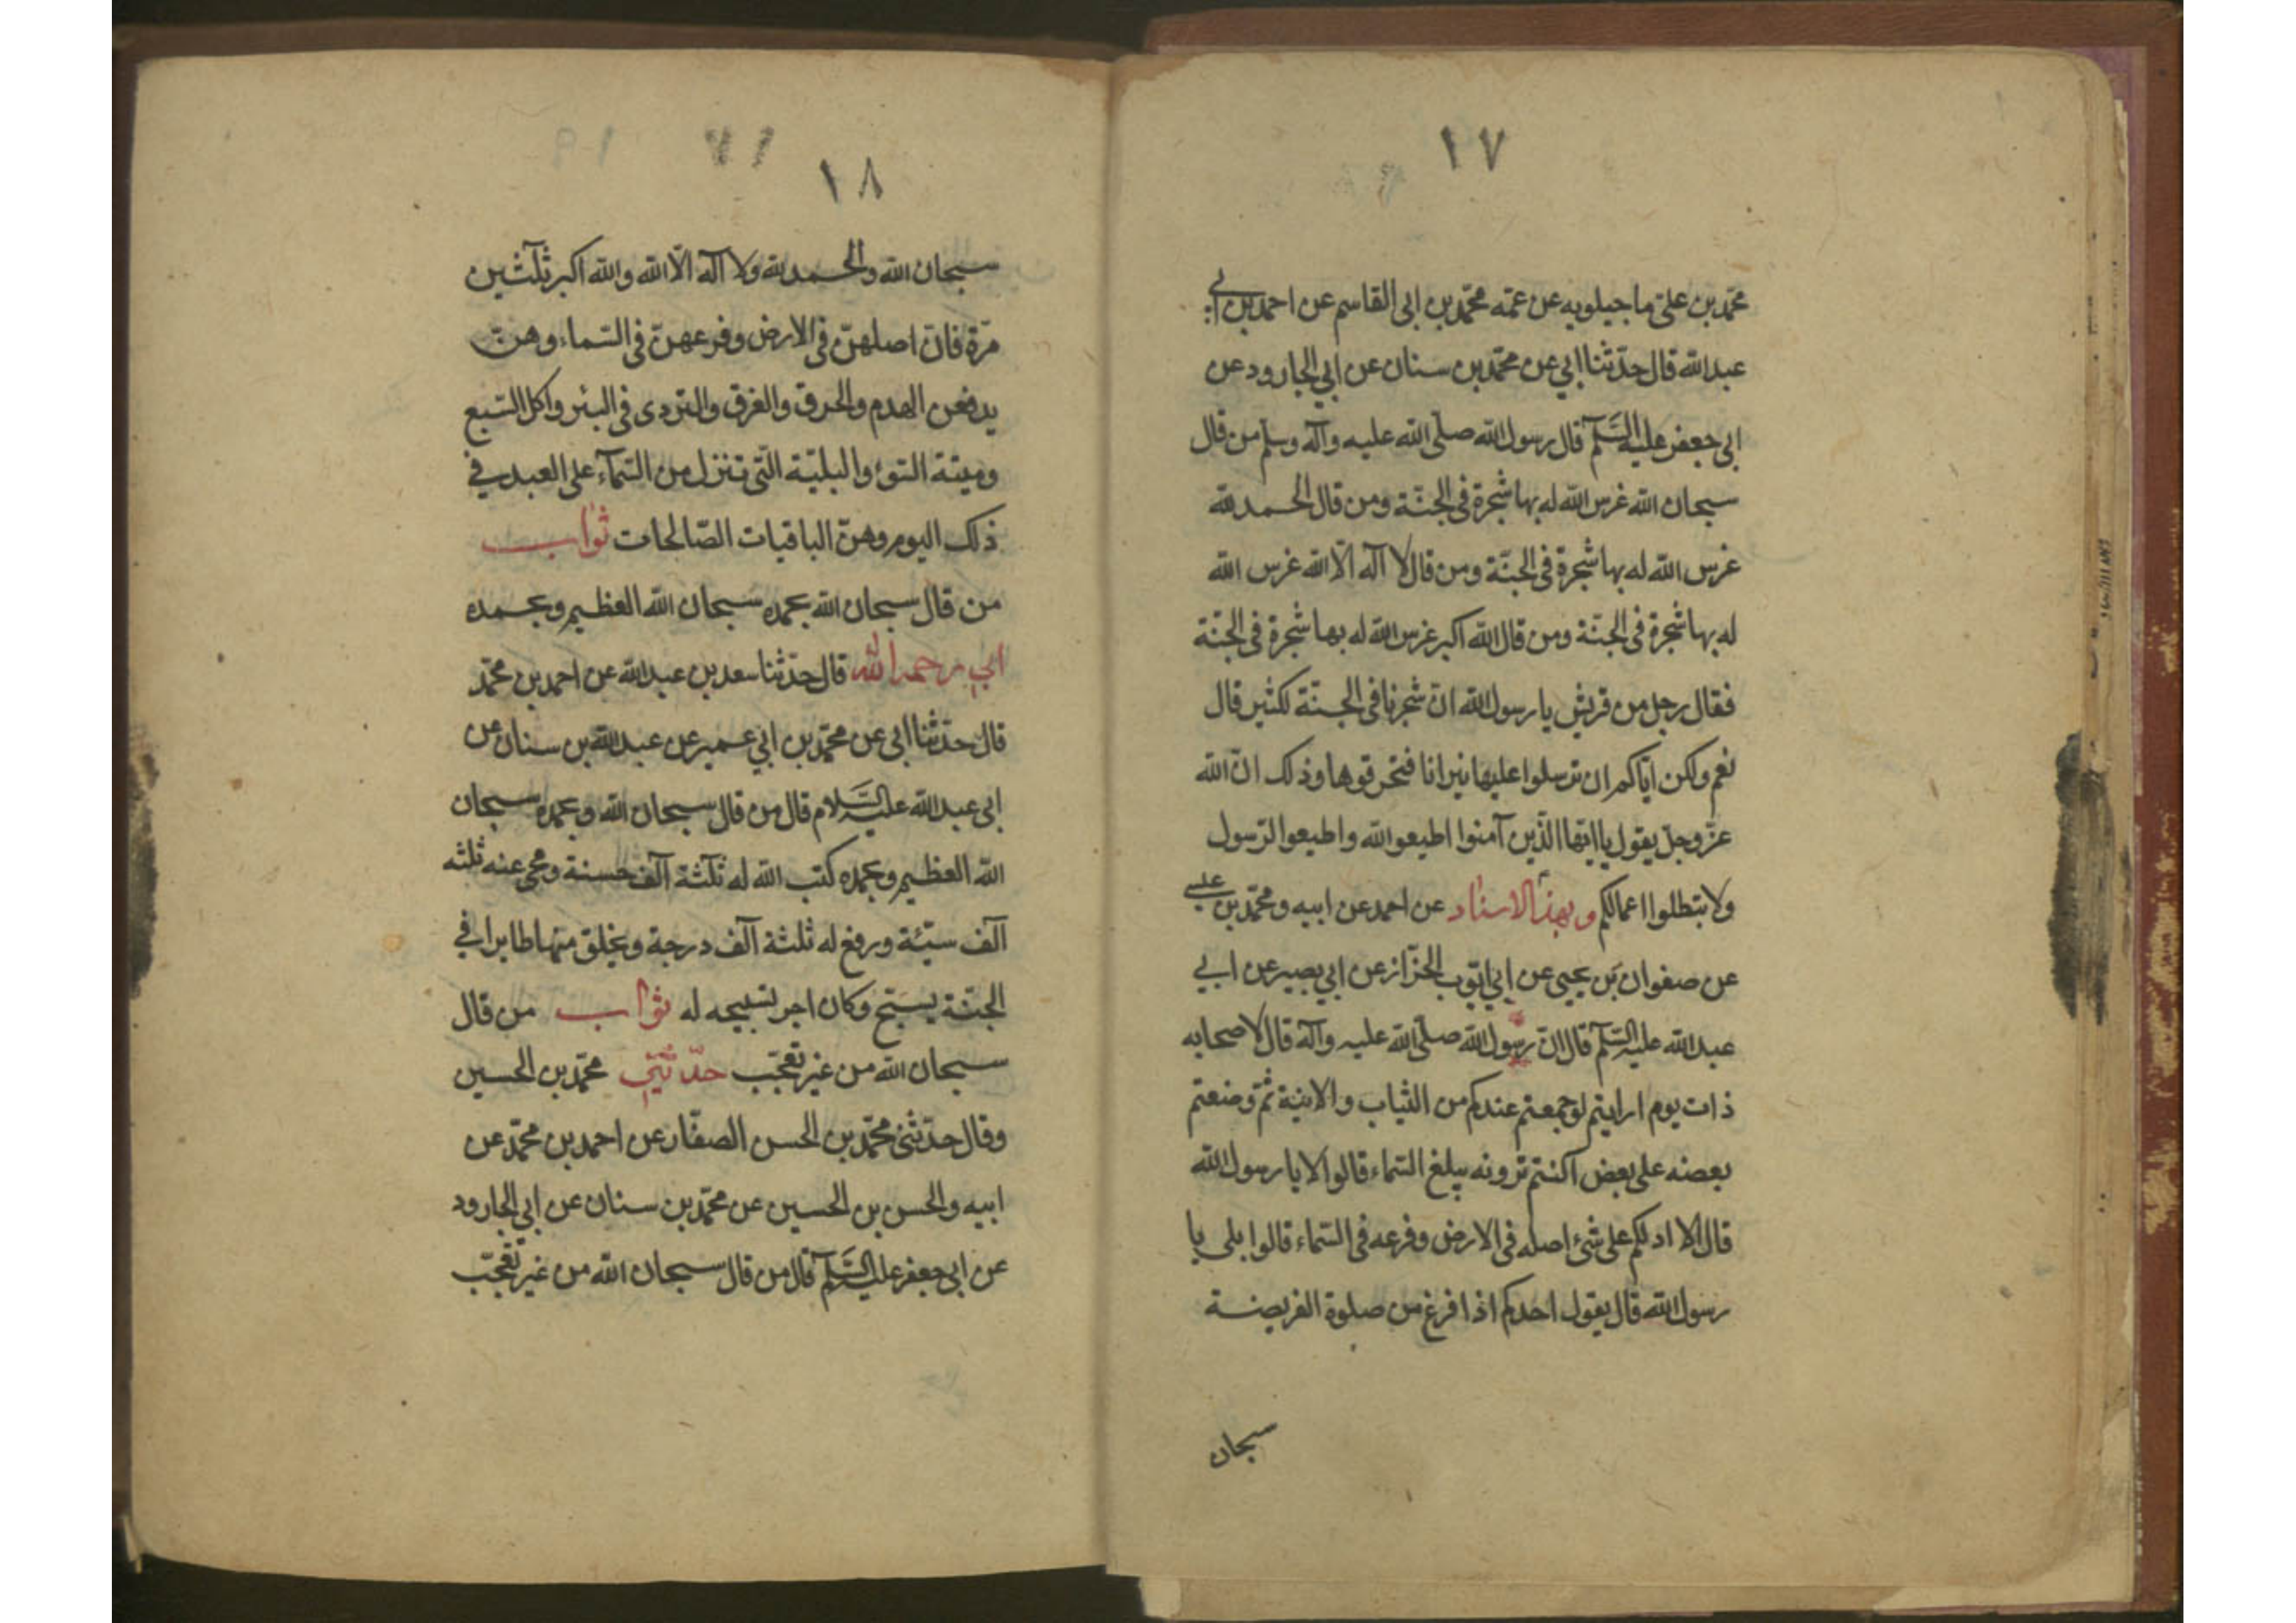 ١٧
محمّد بن علیّ ماجیلویه عن عمّه محمّد بن ابی القاسم عن احمد بن ابی
عبدالله قال حدّثنا ابی عن محمّد بن سنان عن ابی الجارود عن
ابی جعفر علیه السّلم قال رسول الله صلّی الله علیه وآله وسلّم من قال
سبحان الله غرس الله له بها شجرة فی الجنّة ومن قال الحمد لله
غرس الله له بها شجرة فی الجنّة ومن قال لا آله الّا الله غرس الله
له بها شجرة فی الجنّة ومن قال الله اکبر غرس الله له بها شجرة فی الجنّة
فقال رجل من قریش یا رسول الله انّ شجرنا فی الجنّة لکثیر قال
نعم ولکن ایّاکم ان ترسلوا علیها نیرانا فتحرقوها وذلک انّ الله
عزّ وجلّ یقول یا ایّها الّذین آمنوا اطیعو الله واطیعوا الرّسول
ولا تبطلوا اعمالکم وبهذا الاسناد عن احمد عن ابیه ومحمّد بن عیسی
عن صفوان بن یحیی عن ابی ایّوب الخزّاز عن ابی بصیر عن ابی
عبدالله علیه السّلم قال انّ رسول الله صلّی الله علیه وآله قال لاصحابه
ذات یوم ارایتم لو جمعتم عندکم من الثیاب والانیة ثمّ وضعتم
بعضه علی بعض اکنتم ترونه یبلغ السّماء قالوا لا یا رسول الله
قال الا ادلکم علی شئ اصله فی الارض وفرعه فی السّماء قالوا بلی یا
رسول الله قال یقول احدکم اذا فرغ من صلوة الفریضة
سبحان
١٨
سبحان الله والحمد لله ولا آله الّا الله والله اکبر ثلثین
مرّة فانّ اصلهنّ فی الارض وفرعهنّ فی السّماء وهنّ
یدفعن الهدم والحرق والغرق والتردی فی البئر واکل السّبع
ومیتة السّوء والبلیّة الّتی تنزل من السّمآء علی العبد فی
ذلک الیوم وهنّ الباقیات الصّالحات ثواب
من قال سبحان الله بحمده سبحان الله العظیم وبحمده
ابی رحمه الله قال حدّثنا سعد بن عبدالله عن احمد بن محمّد
قال حدّثنا ابی عن محمّد بن ابی عمیر عن عبدالله بن سنان عن
ابی عبدالله علیه السّلام قال من قال سبحان الله وبحمده سبحان
الله العظیم وبحمده کتب الله له ثلثة آلف حسنة ومحی عنه ثلثه
آلف سیّئة ورفع له ثلثة آلف درجة ویخلق منها طایرا فی
الجنّة یسبّح وکان اجر تسبیحه له ثواب من قال
سبحان الله من غیر تعجّب حدّثنی محمّد بن الحسین
وقال حدّثنی محمّد بن الحسن الصفّار عن احمد بن محمّد عن
ابیه والحسن بن الحسین عن محمّد بن سنان عن ابی الجارود
عن ابی جعفر علیه السّلم قال من قال سبحان الله من غیر تعجّب